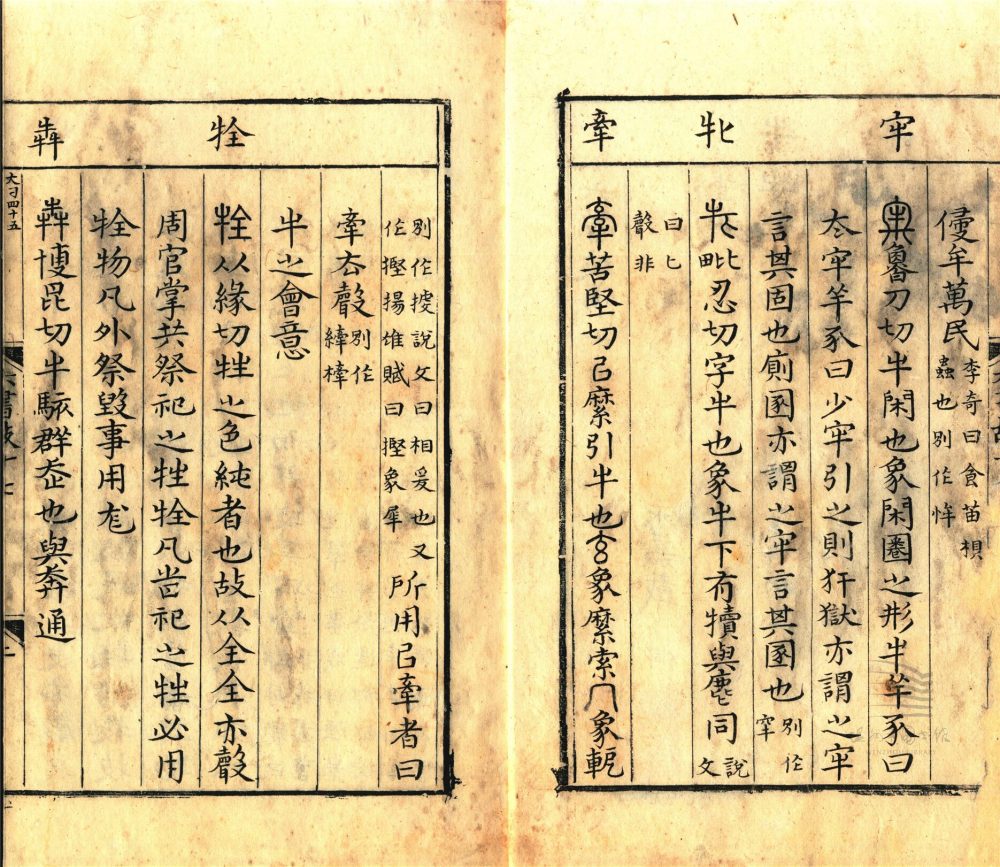 牢
牝
牽
侵牟萬民李奇曰食苗根
蟲也別作蛑
牢魯刀切牛閑也象閑圈之形牛羊豕曰
大牢羊豕曰少牢引之則犴獄亦謂之牢
言其固也廁圂亦謂之牢言其圂也別作
窂
牝毗忍切字牛也象牛下有犢與麀同說
文
曰匕
聲非
牽苦堅切㠯縻引牛也玄象縻索冂象軛
牷
犇
別作㨿說文曰相爰也又
作摼揚雄賦曰摼象犀
所用㠯牽者曰
牽去聲別作
縴㯠
牛之會意
牷从緣切牲之色純者也故从全全亦聲
周官掌共祭祀之牲牷凡旹祀之牲必用
牷物凡外祭毀事用尨
犇博昆切牛駭群奔也與奔通
大刁四十五
六書故十七